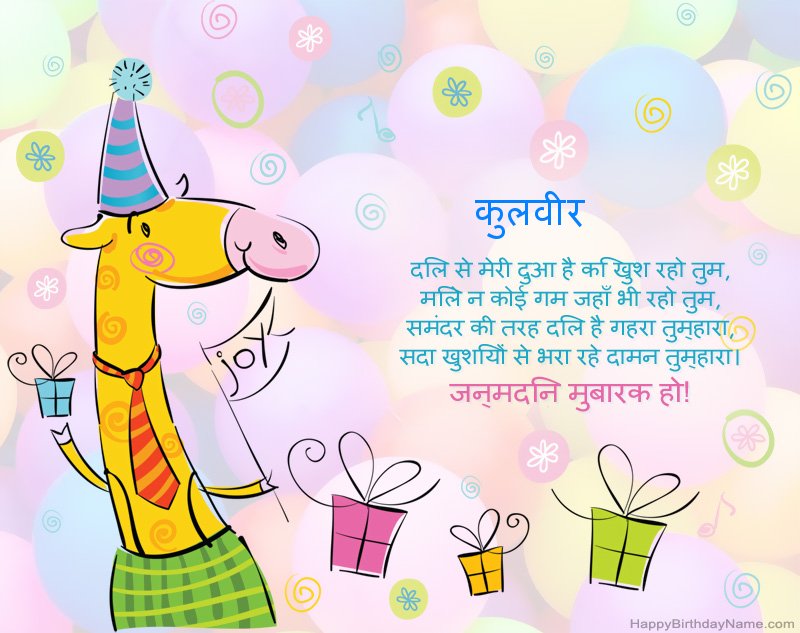 कुलवीर
दिल से मेरी दुआ है कि खुश रहो तुम,
मिले न कोई गम जहाँ भी रहो तुम,
समंदर की तरह दिल है गहरा तुम्हारा,
सदा खुशियों से भरा रहे दामन तुम्हारा।
जन्मदिन मुबारक हो!
joy
HappyBirthdayName.com